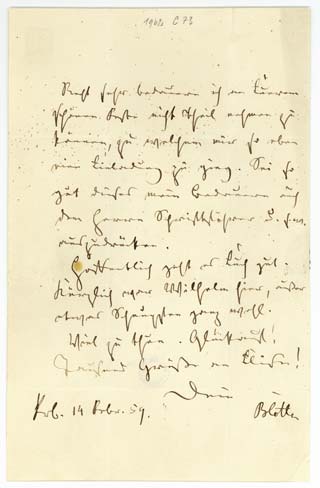 1960 C 73
Recht sehr bedauern ich an Eurem
schönen Feste nicht Theil nehmen zu
können, zu welchem mir so eben
eine Einladung zu ging. Sei so
gut dieses mein Bedauern auch
dem Herrn Schriftführer
auszudrücken.
Hoffentlich geht es Euch gut.
Kürzlich war Wilhelm hier, außer
etwas Schnupfen ganz wohl.
Viel zu thun. Glückauf!
Tausend Grüße an Elise!
Dein
14 Febr. 59.